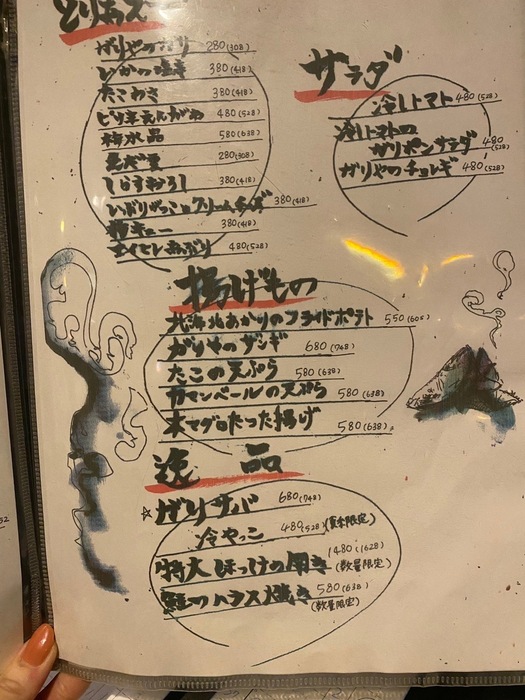 とりあえず
がりやのガリ 280(308)
いかの塩辛 380(418)
たこわさ 380(418)
ピリ辛えんがわ 480(528)
梅水晶 580(638)
280(308)
しらすおろし 380(418)
いぶりがっことクリームチーズ 380(418)
梅キュー 380(418)
480(528)
サラダ
冷しトマト 480(528)
冷しトマトの
ガリポンサラダ 480(528)
ガリやのチョレギ 480(528)
揚げもの
北海北あかりのフライドポテト 550(605)
がりやのザンギ 680(748)
たこの天ぷら 580(638)
カマンベールの天ぷら 580(638)
本マグロたった揚げ 580(638)
逸品
☆ガリサバ 680(748)
冷やっこ 480(528)(夏季限定)
特大ほっけの開き 1480(1628)
(数量限定)
鮭のハラス焼き 580(638)
(数量限定)